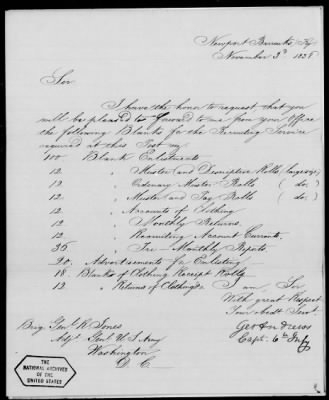 Newport Barracks, Ky
November 3d 1838
Sir
I have the honor to request, that you
will be pleased to forward to me from your Office
the following Blanks for the Recruiting Service
required at this Post viz
100 Blank Enlistments
12. " Muster and Descriptive Rolls (large size)
12. " Ordinary Muster Rolls (do.)
12. " Muster and Pay Rolls (do.)
12. " Accounts of Clothing
12 " Monthly Returns
12. " Recruiting Account Currents.
36. " Tri-Monthly Reports
20. Advertisements for Enlisting
18. Blanks of Clothing Receipt Rolls
12 " Returns of Clothing
I am, Sir
With great Respect
Your Obdt Servt.
Geo Andrews
Capt. 6th Infy
Brig. Genl. R Jones
Adjt Genl. U S Army
Washington
D. C.
THE
NATIONAL ARCHIVES
OF THE
UNITED STATES